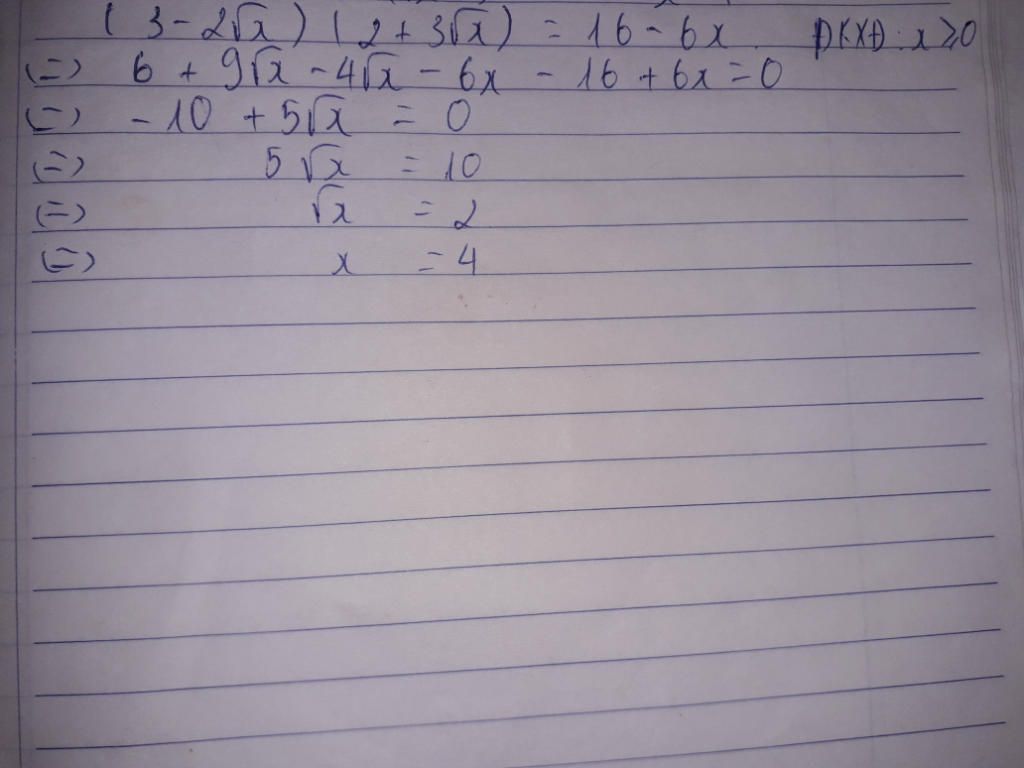 (3 - 2√x) (2 + 3√x) = 16 - 6x. ĐKXĐ: x ≥ 0
(=) 6 + 9√x - 4√x - 6x - 16 + 6x = 0
(=) - 10 + 5√x = 0
(=) 5√x = 10
(=) √x = 2
(=) x = 4